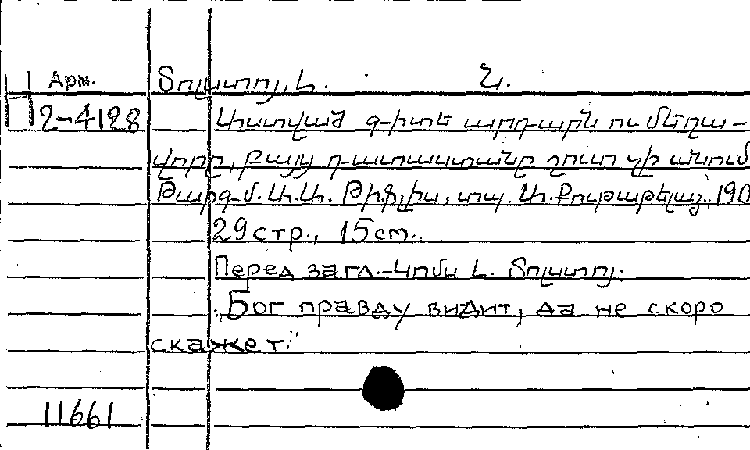 Арм. Տոլստոյ, Լ. Ն.
П2-4128 Աստված գիտե արդարն ու մեղա-
վորը, բայց դատաստանը շուտ չի անում
Թարգմ. Ա. Ա. Թիֆլիս, տպ. Ա. Քութաթելաձ, 190
29 стр., 15 см.
Перед загл.-Կոմս Լ. Տոլստոյ.
"Бог правду видит, да не скоро
скажет."
11661